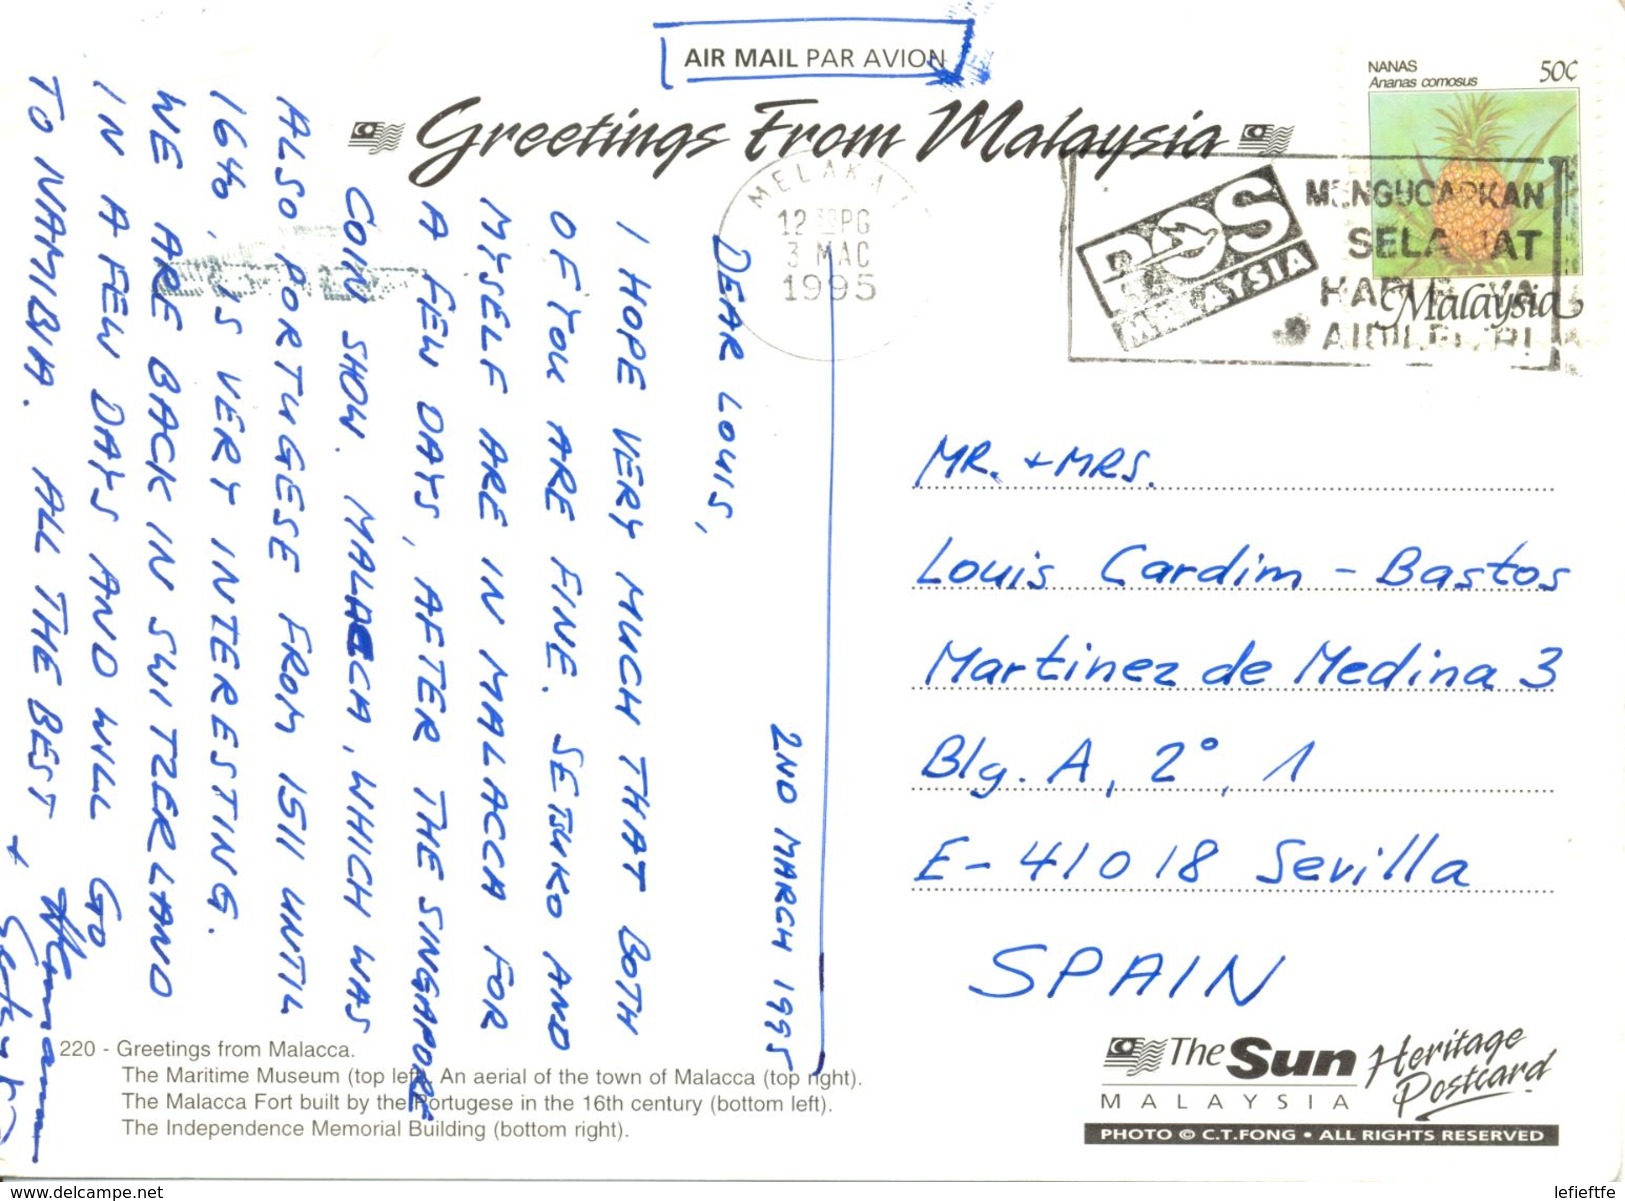 AIR MAIL PAR AVION
Greetings From Malaysia
NANAS 50¢
Ananas comosus
Malaysia
MELAKA
12 PG
3 MAC
1995
POS
MALAYSIA
MENGUCAPKAN
SELAMAT
HARI RAYA
AIDILFITRI
2ND MARCH 1995
DEAR LOUIS,
I HOPE VERY MUCH THAT BOTH
OF YOU ARE FINE. SETSUKO AND
MYSELF ARE IN MALACCA FOR
A FEW DAYS, AFTER THE SINGAPORE
COIN SHOW. MALACCA, WHICH WAS
ALSO PORTUGESE FROM 1511 UNTIL
1640, IS VERY INTERESTING.
WE ARE BACK IN SWITZERLAND
IN A FEW DAYS AND WILL GO
TO NAMIBIA. ALL THE BEST,
MR. + MRS.
Louis Cardim - Bastos
Martinez de Medina 3
Blg. A, 2°, 1
E-41018 Sevilla
SPAIN
220 - Greetings from Malacca.
The Maritime Museum (top left). An aerial of the town of Malacca (top right).
The Malacca Fort built by the Portugese in the 16th century (bottom left).
The Independence Memorial Building (bottom right).
The Sun Heritage Postcard
MALAYSIA
PHOTO © C.T.FONG • ALL RIGHTS RESERVED
www.delcampe.net
lefieftfe